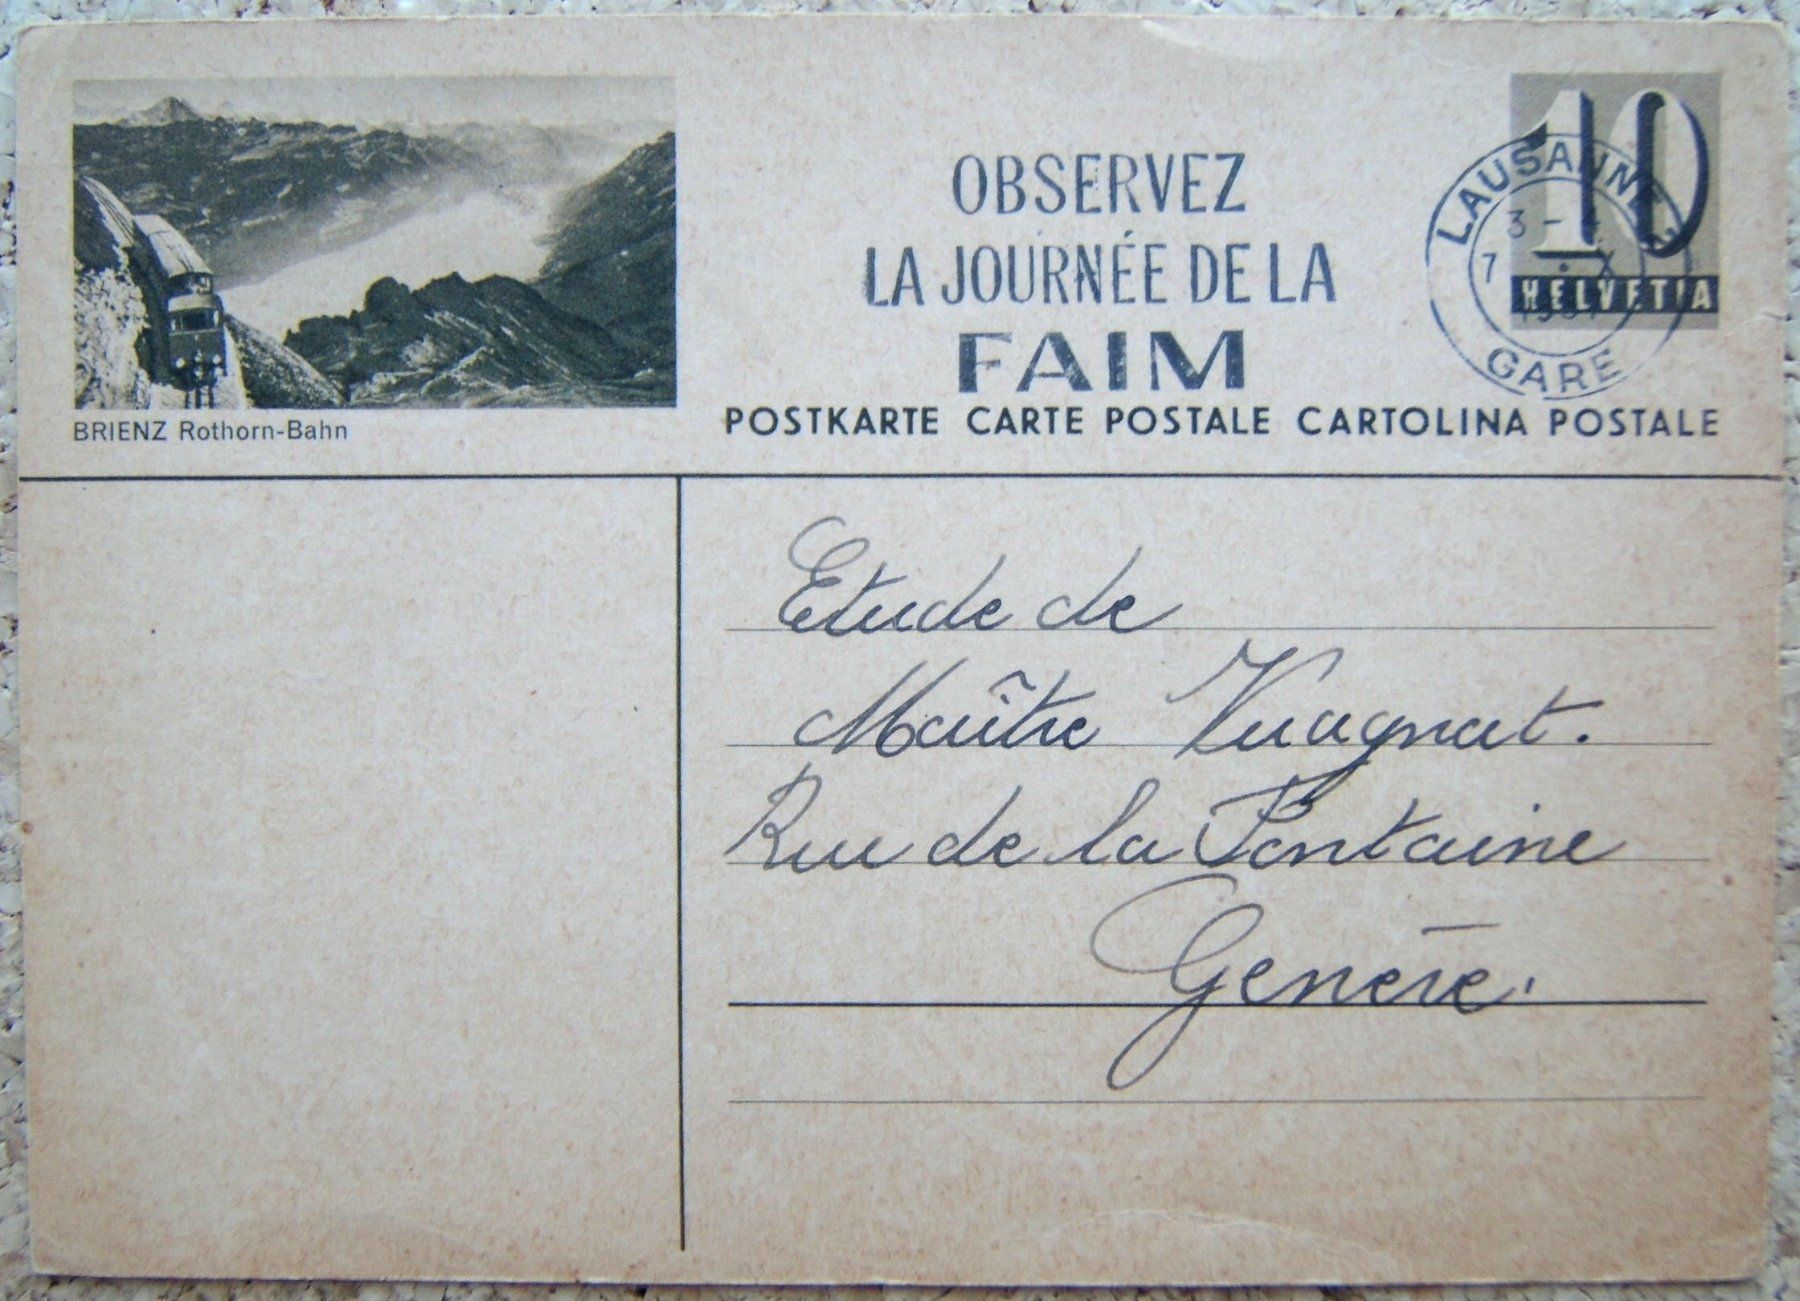 BRIENZ Rothorn-Bahn
OBSERVEZ
LA JOURNÉE DE LA
FAIM
LAUSANNE
GARE
10
HELVETIA
POSTKARTE CARTE POSTALE CARTOLINA POSTALE
Etude de
Maître Vuagnat.
Rue de la Fontaine
Genève.